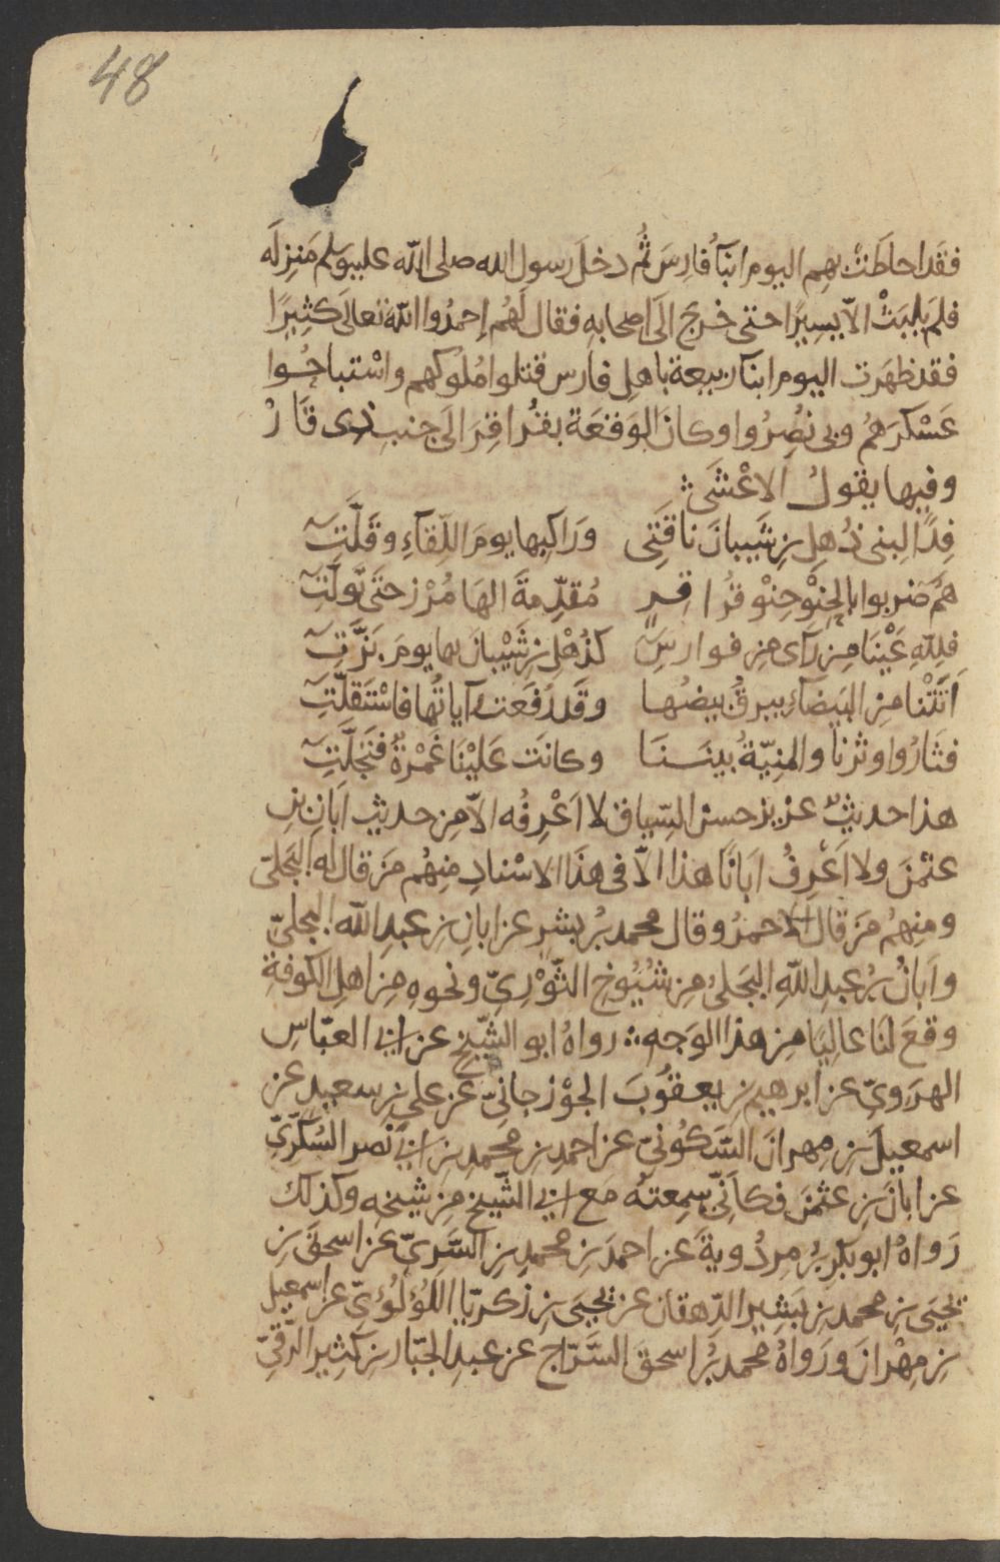 48
فقَد احاطَتْ بهم اليوم ابنآ فارسَ ثُم دخلَ رسول الله صلى الله عليه وسلم مَنزِلَه
فلم يَلبَثْ الاّ يسِيرًا حتى خرجَ الَى اصحابهِ فقال لَهُم إحمدُوا اللهَ تعالَى كَثِيرًا
فقد ظهَرت اليوم ابنآ ربيعة باهلِ فارس قتلوا مُلُوكهم واسْتباحُوا
عَسْكَرَهُم وبى نُصِرُوا وكان الوَقعَة بقُراقِرَ الَى جنبِ ذى قَارْ
وفيها يقولُ الاعْشَى
فِدًا لبنى ذُهلِ بنِ شَيبانَ ناقَتِى ورَاكبها يومَ اللّقآءِ وقَلَّتِ
همُ ضربوا بالحِنْوِ حِنْوِ قُراقِرٍ مُقدِّمةَ الهَامُرْز حتَى تولَّتِ
فلِلّهِ عَيْنَا مَن رَآى من فوارسٍ كذُهْلِ بن شَيْبانَ بها يومَ نزَّتِ
اَتَتْنا مِن البَيضآءِ يبرقُ بيضُها وقَد رُفعَت آياتُها فاسْتَقلَّتِ
فثَارُوا وثرنا والمنِيّةُ بينَنا وكانَت عَلَيْنَا غَمْرةٌ فتَجَلَّتِ
هذا حديثٌ عزيز حسن السِّياق لا اَعْرِفُه الاّ مِن حديثِ اَبَانِ بنِ
عثمنَ ولا اَعْرِفُ اَبانًا هذا الاّ فى هذَا الاسْنادِ منِهُم مَن قالَ له البَجَلىّ
ومنِهُم مَن قالَ الاحمرُ وقال محمد بنُ بشرٍ عن ابانِ بنِ عبدِ الله البجلىّ
واَبانُ بنُ عبدِ اللهِ البَجَلىُ مِن شُيُوخِ الثّوْرِىّ ونحوهِ مِن اهلِ الكوفةِ
وقعَ لنَا عالِيًا مِن هذا الوَجهِ رواهُ ابو الشّيخ عن ابى العبّاس
الهرَوِىّ عن ابرهيم بنِ يعقوبَ الجوْزجانِىّ عن علىِ بنِ سعيدٍ عن
اسمعيلَ بنِ مِهرانَ السَّكُونىّ عن احمدِ بنِ محمدِ بنِ ابى نصر السُكّرىّ
عن ابانَ بنِ عثمنَ فكاَنّى سمِعتهُ مَع ابى الشّيخ مِن شيخِه وكذلكَ
رَواهُ ابو بكرِ بنُ مِردُويةَ عن احمدَ بنِ محمدِ بنِ السَّرىّ عن اسحقَ بنِ
يحيَى بنِ محمدِ بنِ بَشِير الدّهقان عن يحيَى بنِ زكريّا اللُؤلُؤىّ عن اسمعيل
بنِ مِهْرانَ ورَواهُ محمد بنُ اسحقَ السَرّاج عن عبدِ الجبّار بنِ كثير الرّقىّ